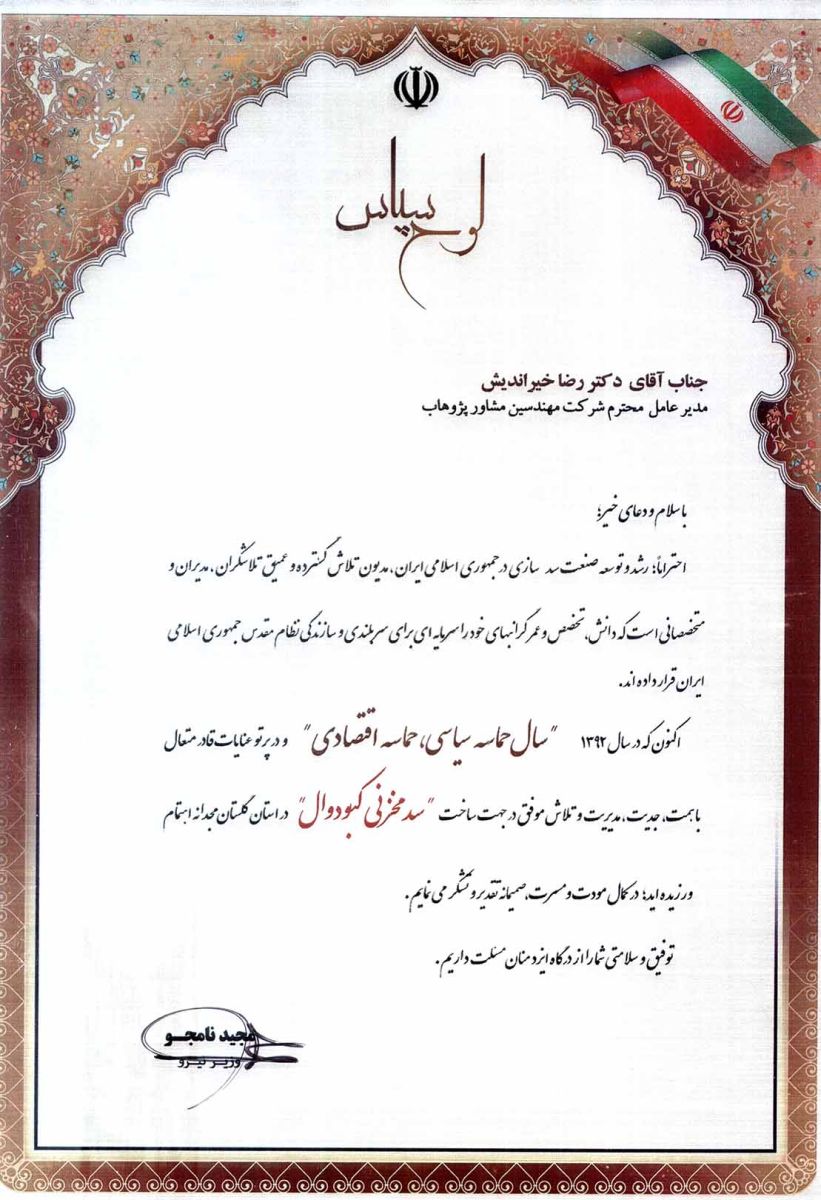 لوح سپاس
جناب آقای دکتر رضا خیراندیش
مدیر عامل محترم شرکت مهندسین مشاور پژوهاب
باسلام و دعای خیر؛
احتراماً؛ رشد و توسعه صنعت سد سازی در جمهوری اسلامی ایران، مدیون تلاش گسترده و عمیق تلاشگران، مدیران و
متخصصانی است که دانش، تخصص و عمر گرانبهای خود را سرمایه ای برای سربلندی و سازندگی نظام مقدس جمهوری اسلامی
ایران قرار داده اند.
اکنون که در سال ۱۳۹۲ "سال حماسه سیاسی، حماسه اقتصادی" و در پرتو عنایات قادر متعال
با همت، جدیت، مدیریت و تلاش موفق در جهت ساخت "سد مخزنی کبودوال" در استان گلستان مجدانه اهتمام
ورزیده اید؛ در کمال مودت و مسرت، صمیمانه تقدیر و تشکر می نمایم.
توفیق و سلامتی شما را از درگاه ایزد منان مسئلت داریم.
مجید نامجو
وزیر نیرو